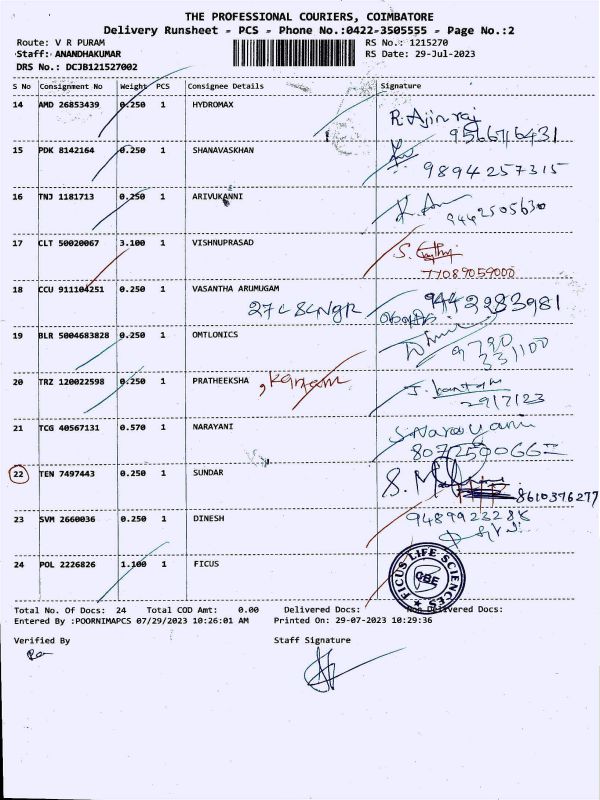 THE PROFESSIONAL COURIERS, COIMBATORE
Delivery Runsheet - PCS - Phone No.:0422-3505555 - Page No.:2
Route: V R PURAM
RS No.: 1215270
Staff: ANANDHAKUMAR
RS Date: 29-Jul-2023
DRS No.: DCJB121527002
S No Consignment No Weight PCS Consignee Details Signature
14 AMD 26853439 0.250 1 HYDROMAX
R. Ajinraj
9566716431
15 PDK 8142164 0.250 1 SHANAVASKHAN
9894257315
16 TNJ 1181713 0.250 1 ARIVUKANNI
9442505630
17 CLT 50020067 3.100 1 VISHNUPRASAD
S.
77089059000
18 CCU 911104251 0.250 1 VASANTHA ARUMUGAM
9442283981
19 BLR 5004683828 0.250 1 OMTLONICS
9790
331100
20 TRZ 120022598 0.250 1 PRATHEEKSHA
29/7/23
21 TCG 40567131 0.570 1 NARAYANI
S.Narayani
22 TEN 7497443 0.250 1 SUNDAR
S.
8610376277
23 SVM 2660036 0.250 1 DINESH
9489923288
24 POL 2226826 1.100 1 FICUS
FICUS LIFE SCIENCES
CBE
Total No. Of Docs: 24 Total COD Amt: 0.00 Delivered Docs: Non Delivered Docs:
Entered By :POORNIMAPCS 07/29/2023 10:26:01 AM Printed On: 29-07-2023 10:29:36
Verified By Staff Signature